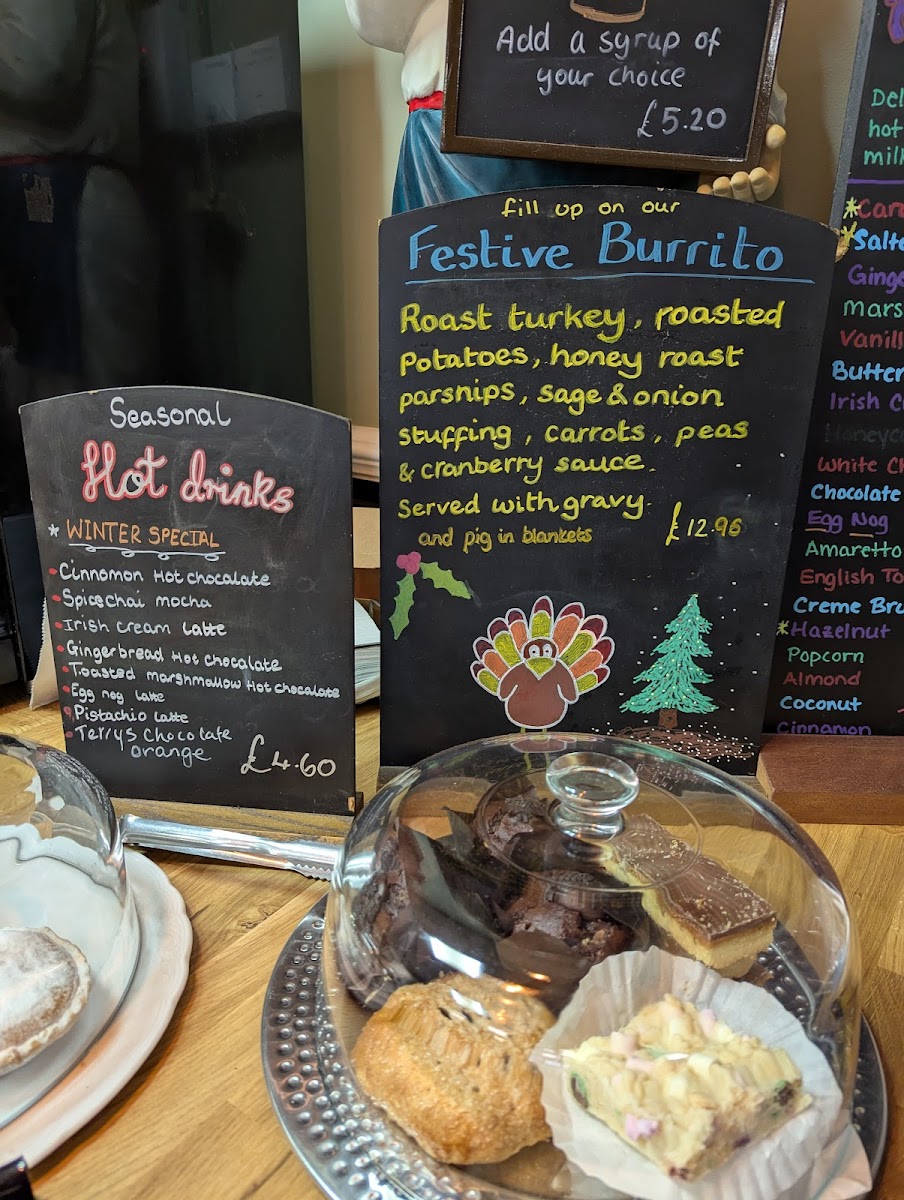 Add a syrup of
your choice
£5.20
fill up on our
Festive Burrito
Roast turkey, roasted
potatoes, honey roast
parsnips, sage & onion
stuffing, carrots, peas
& cranberry sauce.
Served with gravy.
and pig in blankets
£12.95
Seasonal
Hot drinks
* WINTER SPECIAL
Cinnomon Hot chocolate
Spice chai mocha
Irish cream Latte
Gingerbread Hot chocolate
Toasted marshmallow Hot chocolate
Egg nog Latte
Pistachio Latte
Terrys Chocolate
orange
£4.60
Del
hot
mil
* Car
* Salte
Ginge
Mars
Vanill
Butter
Irish C
Honeyc
White Ch
Chocolate
Egg Nog
Amaretto
English To
Creme Bru
* Hazelnut
Popcorn
Almond
Coconut
Cinnamon